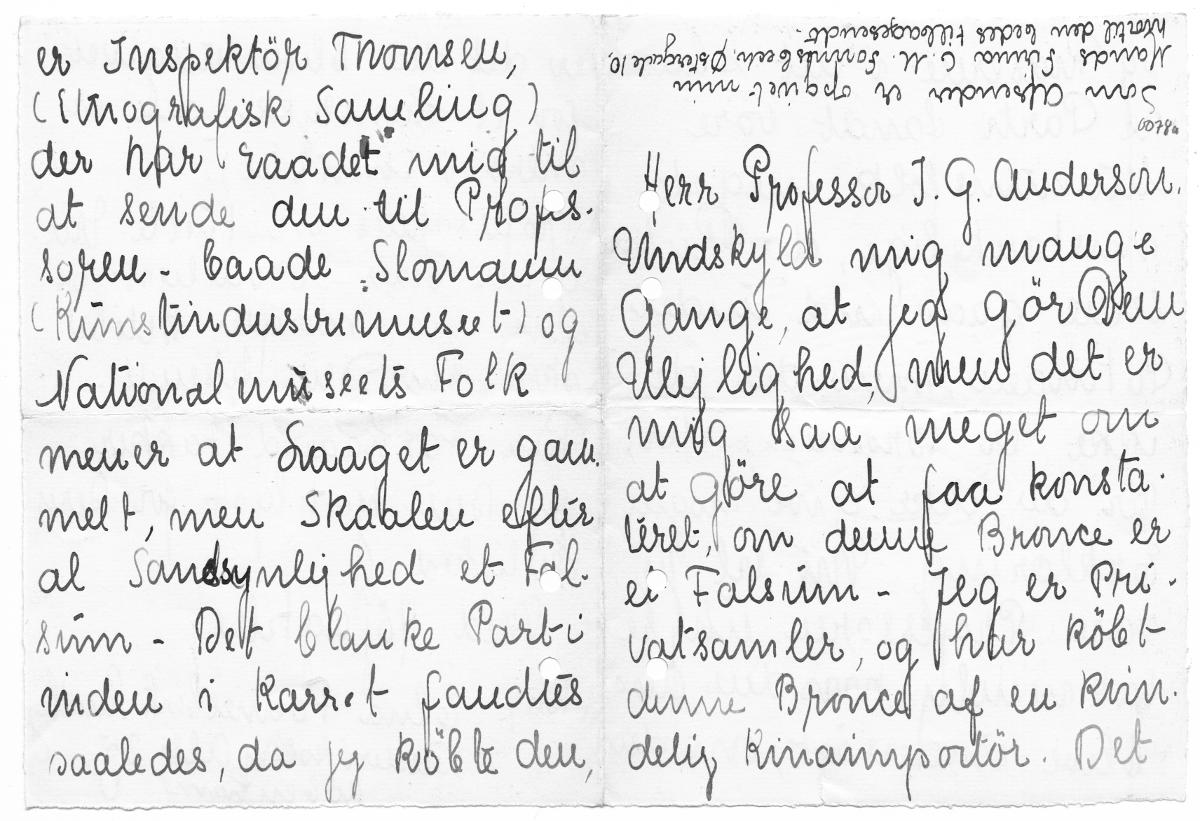 Herr Professor J. G. Anderson.
Undskyld mig mange
Gange, at jeg gör Dem
Ulejlighed, men det er
mig saa meget om
at göre at faa konsta-
teret, om denne Bronce er
ei Falsum - Jeg er Pri-
vatsamler, og har köbt
denne Bronce af en kvin-
delig Kinaimportör. Det
er Inspektör Thomsen,
(Etnografisk Samling)
der har raadet mig til
at sende den til Profes-
soren - baade Slomann
(Kunstindustrimuseet) og
Nationalmuseets Folk
mener at Laaget er gam-
melt, men Skaalen efter
al Sandsynlighed et Fal-
sum - Det blanke Parti
inden i Karret fandtes
saaledes, da jeg köbte den,
Som Afsender er opgivet min
Mands Firma C. M. Østergade 10.
hvortil den bedes tilbagesendt.